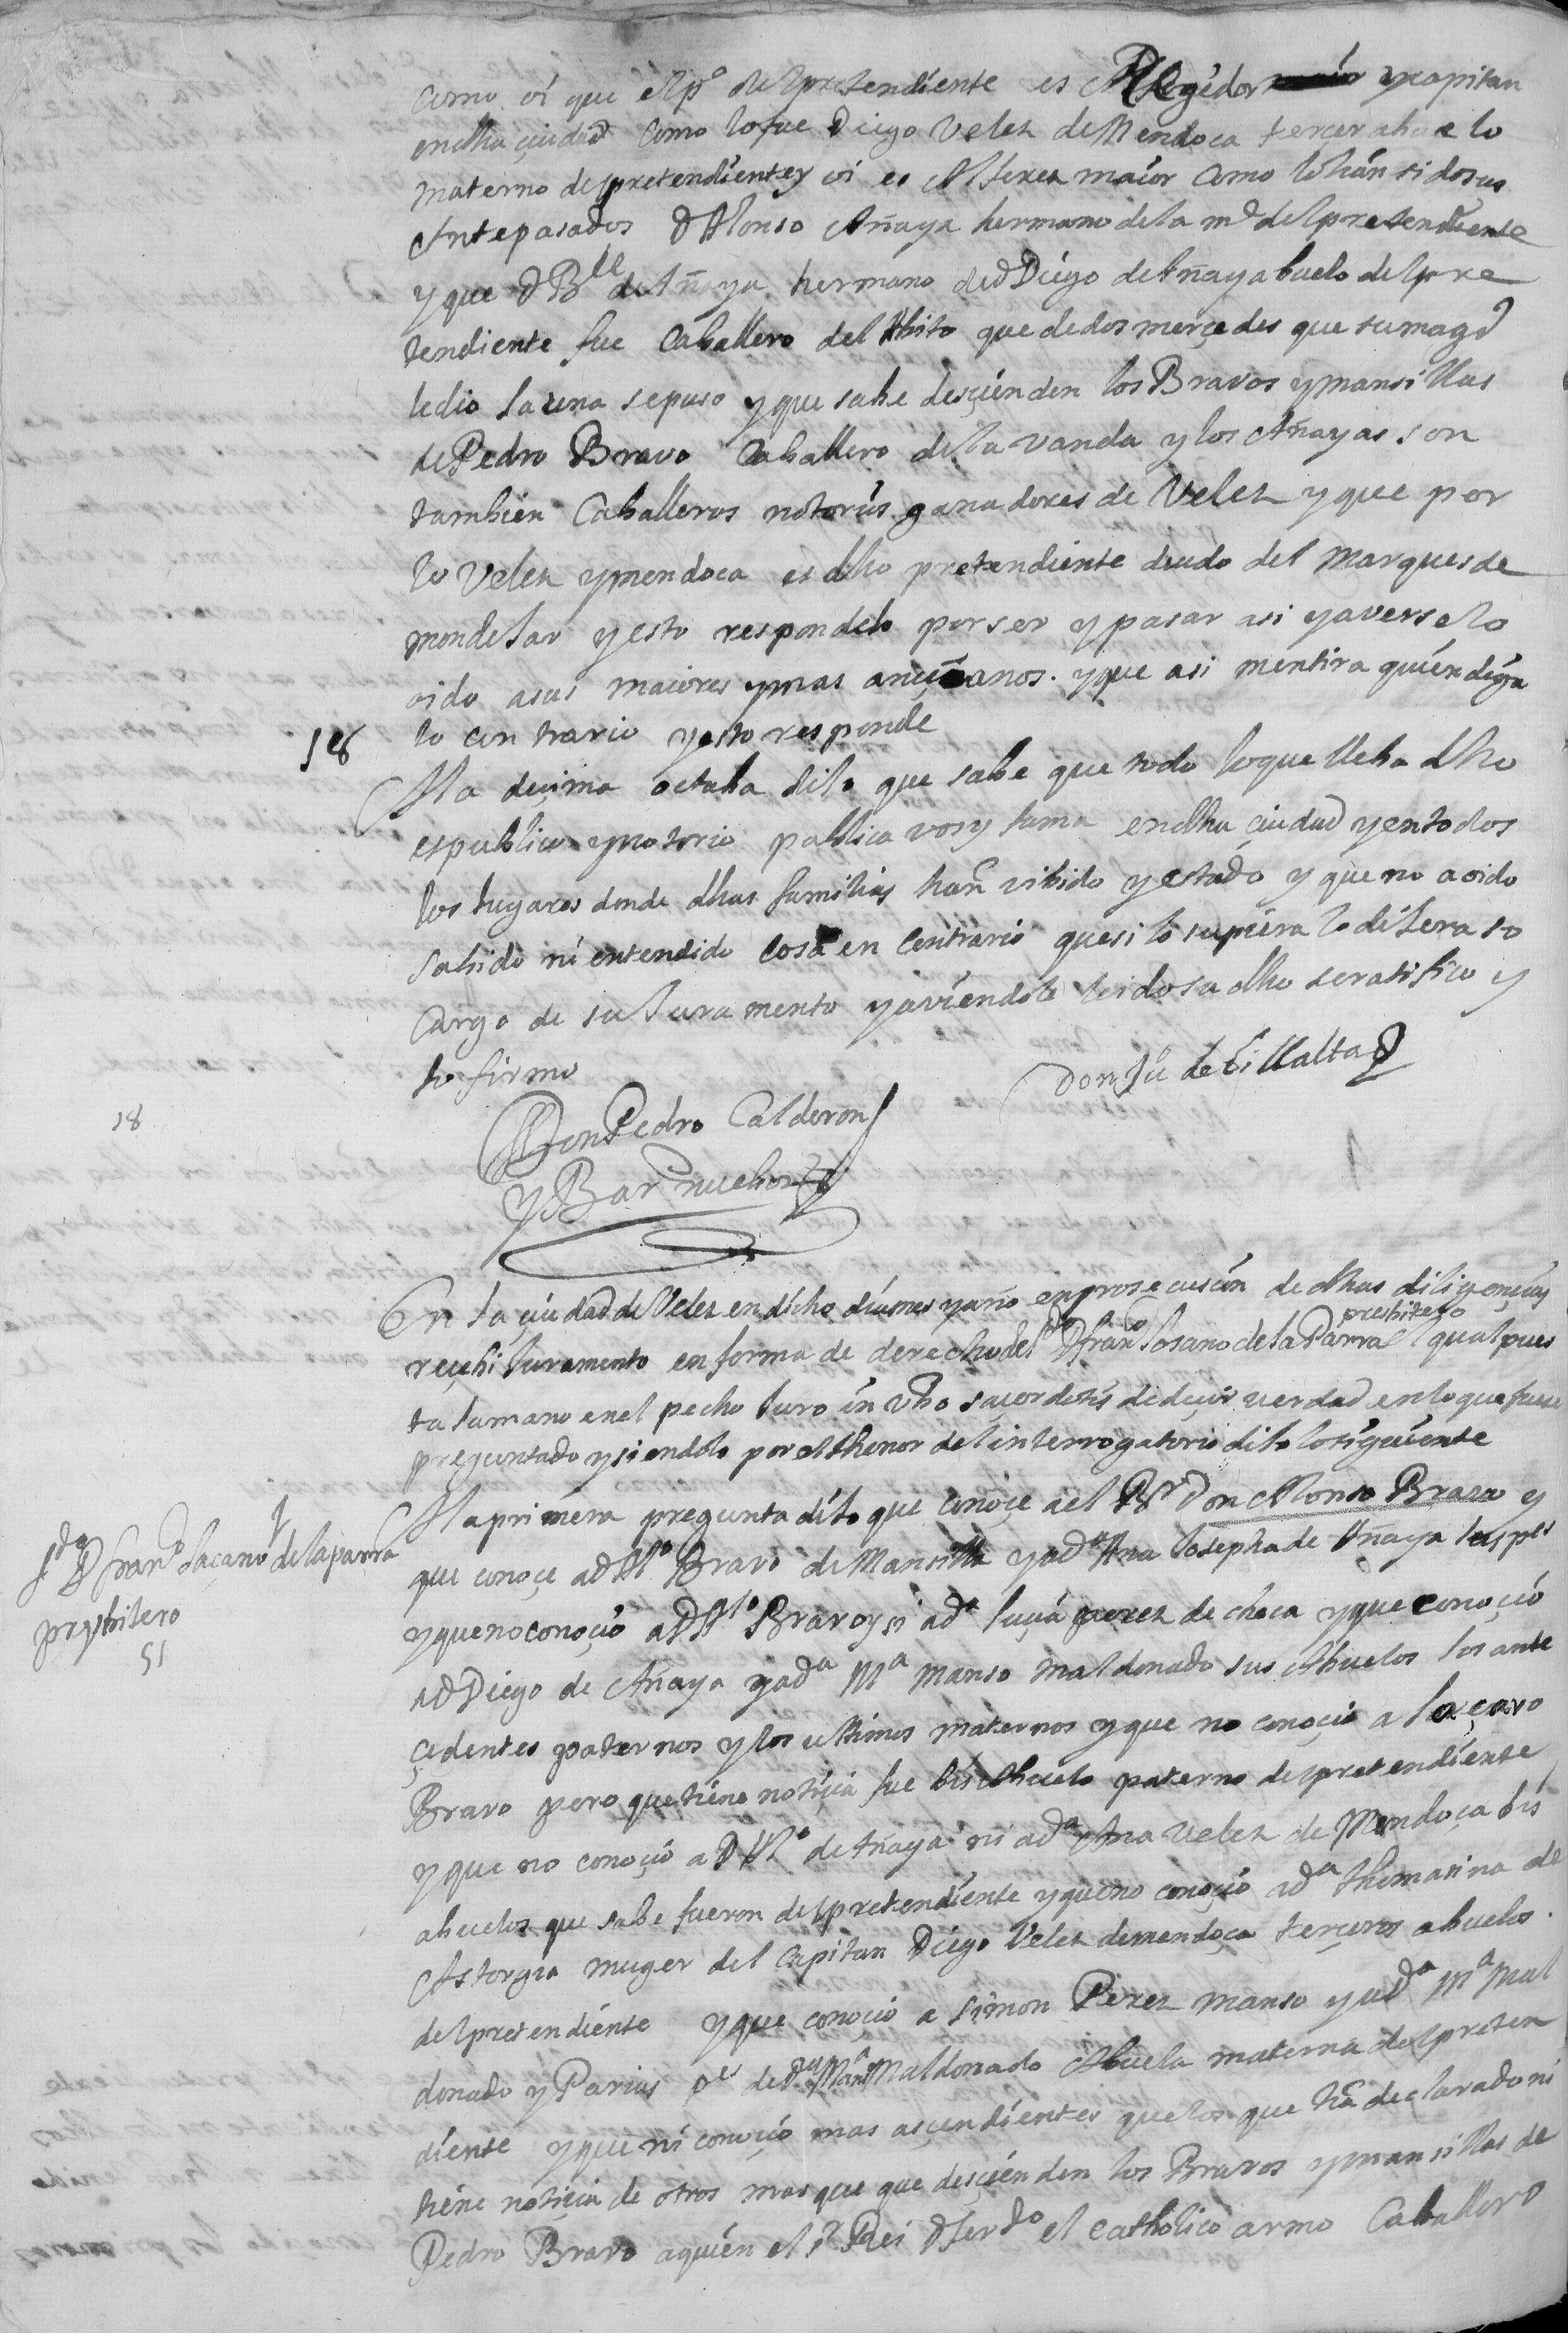 como oi que el p.e del pretendiente es Regidor y capitan
en dha çiudad como lo fue Diego Velez de Mendoca terçer abuelo
materno del pretendiente y oi es Alferez maior como lo han sido sus
Antepasados D Alonso Añaya hermano de la m.e del pretendiente
y que D B.lle de Añaya hermano de D Diego de Añaya buelo del pre
tendiente fue Caballero del Abito que de dos merçedes que su mag.d
le dio la una se puso y que sabe desçienden los Bravos y mansillas
de Pedro Bravo Caballero de la vanda y los Añayas son
tambien Caballeros notorios ganadores de Velez y que por
lo Velez y mendoca es dho pretendiente deudo del Marques de
mondeJar y esto respondelo por ser y pasar asi y averselo
oido a sus maiores y mas ançianos. y que asi mentira quien diga
lo contrario y esto responde
18
A la deçima octaba diJo que sabe que todo lo que lleba dho
es publico y notorio publica vos y fama en dha çiudad y en todos
los lugares donde dhas familias han vibido y estado y que no a oido
sabido ni entendido cosa en contrario que si lo supiera lo diJera so
cargo de su Juramento y aviendole leido su dho se ratifico y
lo firmo
Don Ju.o de Villalta
Don Pedro Calderon
y Barnuebo
18
En la çiudad de Velez en dicho dia mes y año en prosecusion de dhas diligençias
reçebi Juramento en forma de derecho del l.do D fran.co Losano de la Parra presbitero el qual pues
ta la mano en el pecho Juro in vbo saçerdotis de deçir verdad en lo que fuese
preguntado y siendolo por el thenor del interrogatorio diJo lo siguiente
1
l.do D fran.co Laçano de la parra
presbitero
51
A la primera pregunta diJo que conoçe a el Pr Don Alonso Bravo y
que conoçe a D Al.o Bravo de Mansilla y a D.a Ana Josepha de Añaya sus p.es
y que no conoçio a D Al.o Bravo y si a D.a luçia perez de checa y que conoçio
a D Diego de Añaya y a D.a M.a Manso Maldonado sus Abuelos los ante
çedentes paternos y los ultimos maternos y que no conoçio a laçaro
Bravo pero que tiene notiçia fue bisAbuelo paterno del pretendiente
y que no conoçio a D Al.o de Añaya ni a D.a Ana Velez de Mendoça bis
abuelos que sabe fueron del pretendiente y que no conoçio a D.a thomasina de
Astorga muger del Capitan Diego Velez de mendoça terçeros abuelos.
del pretendiente y que conoçio a Simon Perez manso y a D.a M.a Mal
donado y Parias p.es de D.a M.a Manso Maldonado Abuela materna del preten
diente y que ni conoçio mas asçendientes que los que ha declarado ni
tiene notiçia de otros mas que que desçienden los Bravos y mansillas de
Pedro Bravo a quien el s.r Rei D fer.do el Catholico armo Caballero